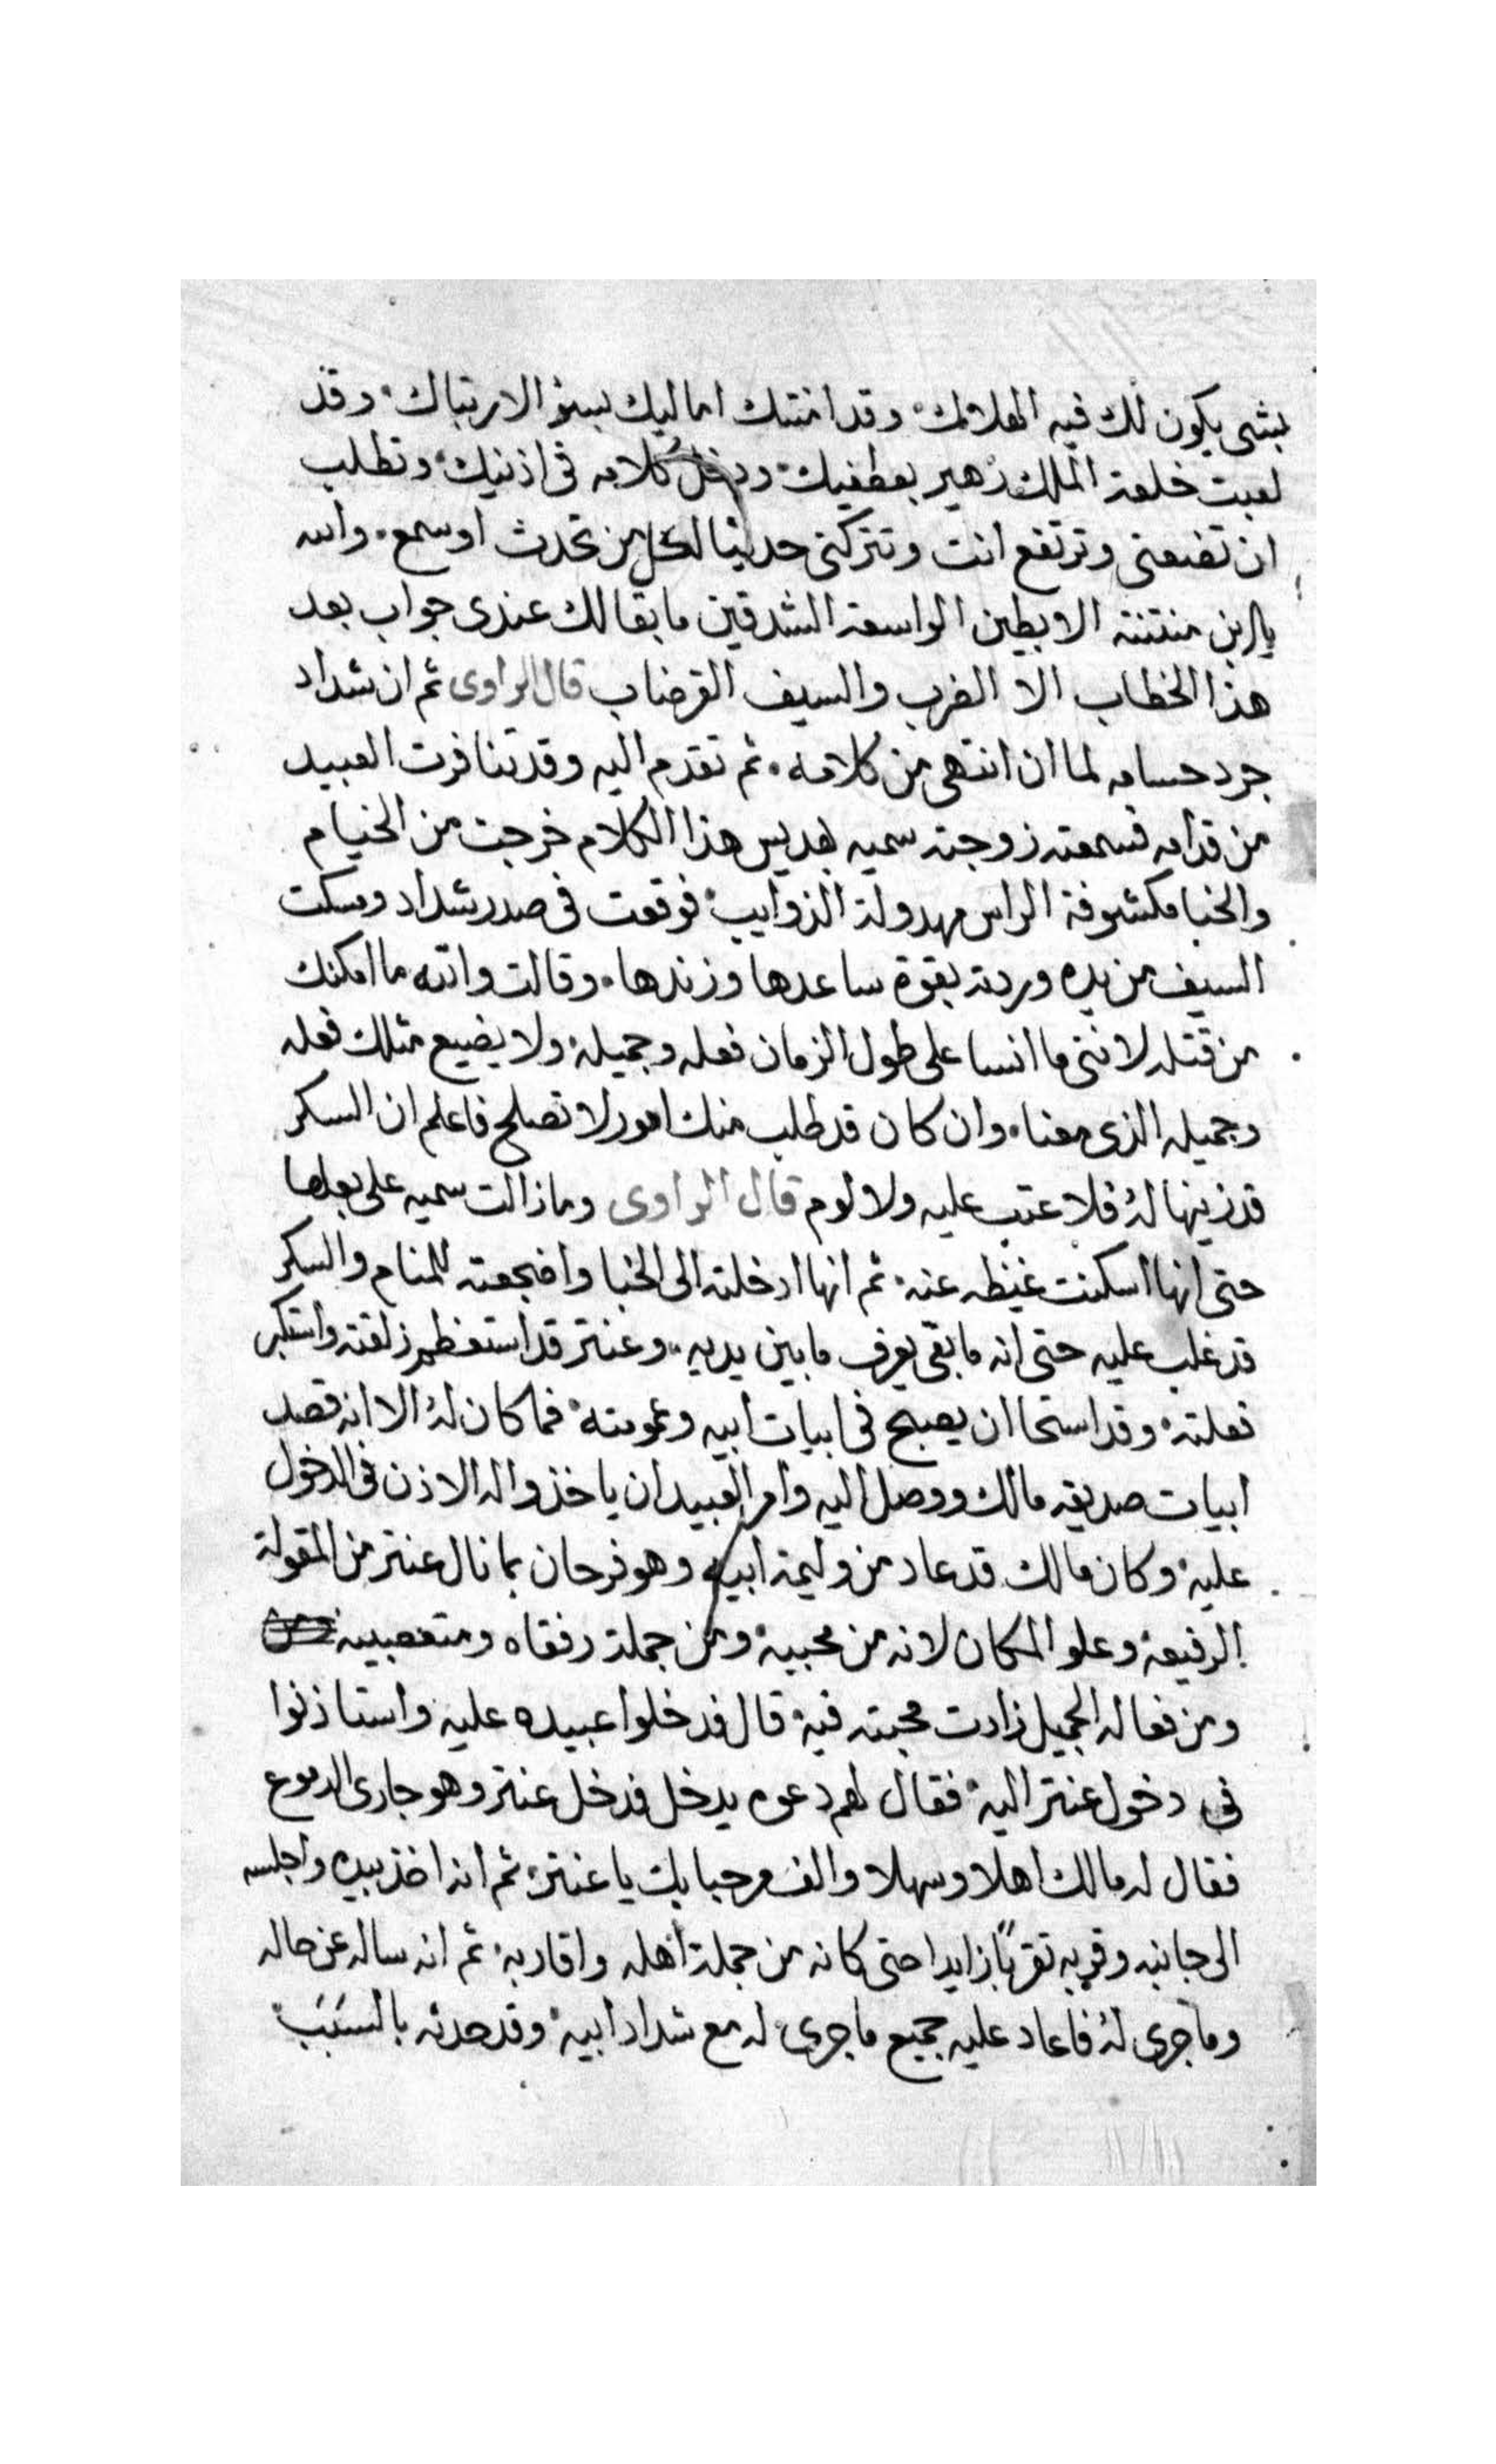 بشى يكون لك فيه الهلاك وقد امنتك اماليك بسؤ الارتباك وقد
لعبت خلعة الملك زهير بعطفيك ودخل كلامه فى اذنيك وتطلب
ان تضعنى وترتفع انت وتتركنى حديثا لكل من تحدث اوسمع والله
يا ابن منتنة الابطين الواسعة الشدقين مابقا لك عندى جواب بعد
هذا الخطاب الا الضرب والسيف القرضاب قال الراوى ثم ان شداد
جرد حسامه لما ان انتهى من كلامه ثم تقدم اليه وقد تنافرت العبيد
من قدامه فسمعته زوجته سميه هذا الكلام خرجت من الخيام
والخبا مكشوفة الراس مهدولة الزوايب فوقعت فى صدر شداد ومسكت
السيف من يده وردته بقوة ساعدها وزندها وقالت والله ما امكنك
من قتله لاننى ما انسا على طول الزمان فعله وجميله ولا يضيع مثلك فعله
وجميله الذى معنا وان كان قد طلب منك امور لا تصلح فاعلم ان السكر
قد زينها له فلا عتب عليه ولا لوم قال الراوى ومازالت سميه على بعلها
حتى انها اسكنت غيظه عنه ثم انها ادخلته الى الخبا واضجعته للمنام والسكر
قد غلب عليه حتى انه مابقى يعرف مابين يديه وعنتر قد استعظم زلقته واستكبر
فعلته وقد استحا ان يصبح فى ابيات ابيه وعمومته فما كان له الا انه قصد
ابيات صديقه مالك ووصل اليه وامر العبيد ان ياخذوا له الاذن فى الدخول
عليه وكان مالك قد عاد من وليمة ابيه وهو فرحان بما نال عنتر من المقولة
الرفيعة وعلو المكان لانه من محبيه ومن جملة رفقاه ومتعصبيه
ومن فعاله الجميل زادت محبته فيه قال فدخلوا عبيده عليه واستاذنوا
فى دخول عنتر اليه فقال لهم دعوه يدخل فدخل عنتر وهو جارى الدموع
فقال له مالك اهلا وسهلا والف مرحبا بك يا عنتر ثم انه اخذ بيده واجلسه
الى جانبه وقربه تقربًا زايدا حتى كانه من جملة اهله واقاربه ثم انه ساله عن حاله
وماجرى له فاعاد عليه جميع ماجرى له مع شداد ابيه وقد حدثه بالسَبَبْ